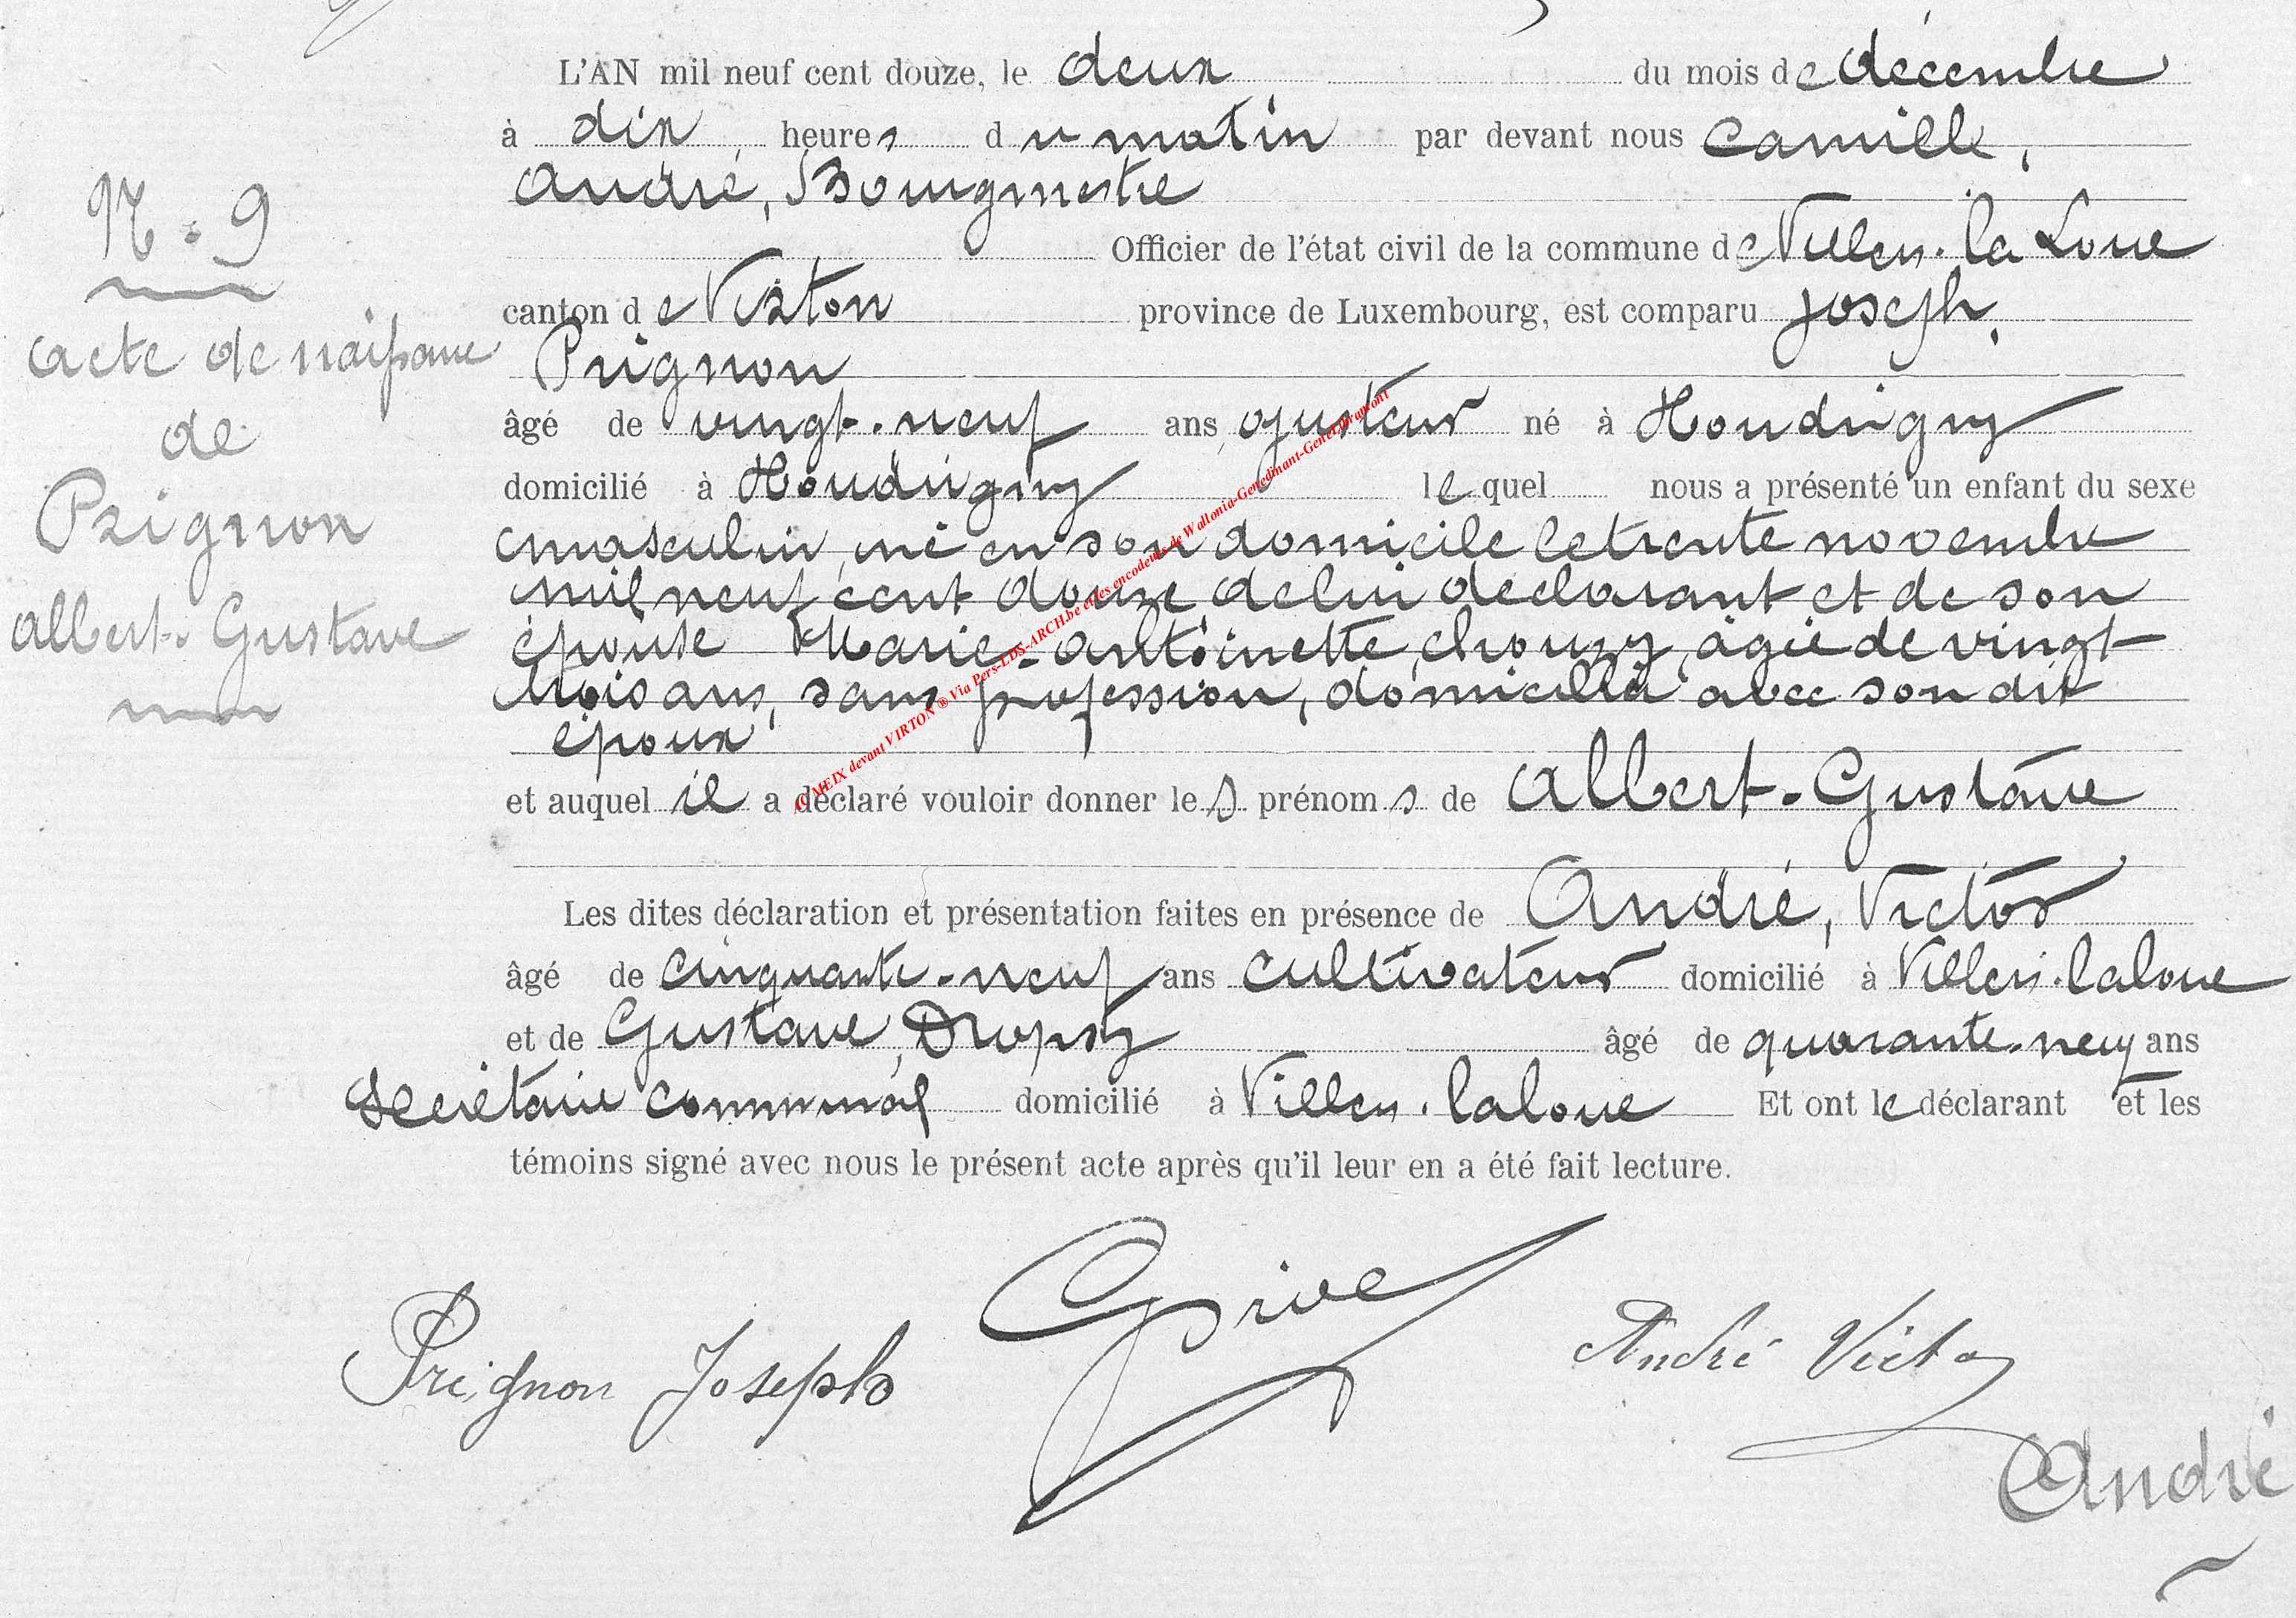 L'AN mil neuf cent douze, le deux du mois de décembre
à dix heures du matin par devant nous Camille,
André, Bourgmestre
Officier de l'état civil de la commune de Villers-la Loue
canton de Virton province de Luxembourg, est comparu Joseph,
Prignon
âgé de vingt-neuf ans ajusteur né à Houdrigny
domicilié à Houdrigny lequel nous a présenté un enfant du sexe
masculin, né en son domicile le trente novembre
mil neuf cent douze de lui déclarant et de son
épouse Marie-Antoinette, âgée de vingt
trois ans, sans profession, domiciliée avec son dit
époux
et auquel il a déclaré vouloir donner les prénoms de Albert-Gustave
Les dites déclaration et présentation faites en présence de André, Victor
âgé de cinquante-neuf ans cultivateur domicilié à Villers-laloue
et de Gustave, Dropsy âgé de quarante-neuf ans
secrétaire communal domicilié à Villers-laloue Et ont le déclarant et les
témoins signé avec nous le présent acte après qu'il leur en a été fait lecture.
N. 9
acte de naissance
de
Prignon
Albert-Gustave
(C) MEIX devant VIRTON ® Via Pers-LDS-ARCH.be et les encodeurs de Wallonia-Genedinant-Genet@ramont
Prignon Joseph
André Victor
André